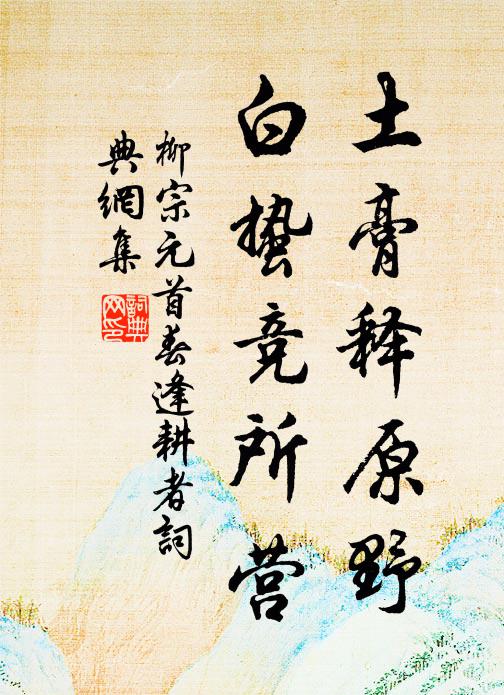 土膏释原野
白蛰竞所营
柳宗元首春逢耕者詞
典網集
詞典
网印